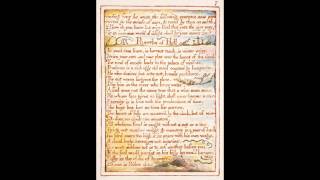 roding fires he wrote the following sentence now per-
cieved by the minds of men, & read by them on earth.
How do you know but ev'ry Bird that cuts the airy way,
Is an immense world of delight, clos'd by your senses five?
Proverbs of Hell
In seed time learn, in harvest teach, in winter enjoy.
Drive your cart and your plow over the bones of the dead.
The road of excess leads to the palace of wisdom.
Prudence is a rich ugly old maid courted by Incapacity.
He who desires but acts not, breeds pestilence.
The cut worm forgives the plow.
Dip him in the river who loves water.
A fool sees not the same tree that a wise man sees.
He whose face gives no light, shall never become a star.
Eternity is in love with the productions of time.
The busy bee has no time for sorrow.
The hours of folly are measur'd by the clock, but of wis-
no clock can measure.
All wholsom food is caught without a net or a trap.
Bring out number weight & measure in a year of dearth.
No bird soars too high, if he soars with his own wings.
A dead body revenges not injuries.
The most sublime act is to set another before you.
If the fool would persist in his folly he would become
Folly is the cloke of knavery.
Shame is Prides cloke.